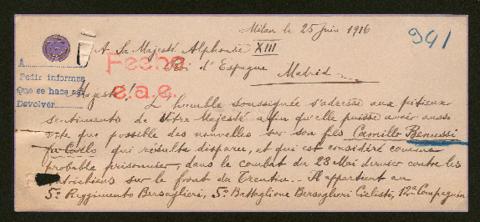 Milan le 25 Juin 1916
941
A Sa Majesté Alphonse XIII
Fecha
Roi d'Espagne
Madrid
A
Pedir informes
Que se hace
Devolver
e.a.e.
L'humble soussignée s'adresse aux
sentiments de Votre Majesté afin qu'elle puisse avoir aussi
vite que possible des nouvelles sur son fils Camillo Benussi
qui résulte disparu, et qui est considéré comme
probable prisonnier, dans le combat du 23 Mai dernier contre les
autrichiens sur le front du Trentin. Il appartient au
5º Reggimento Bersaglieri, 5º Battaglione Bersaglieri Ciclisti, Compagnia